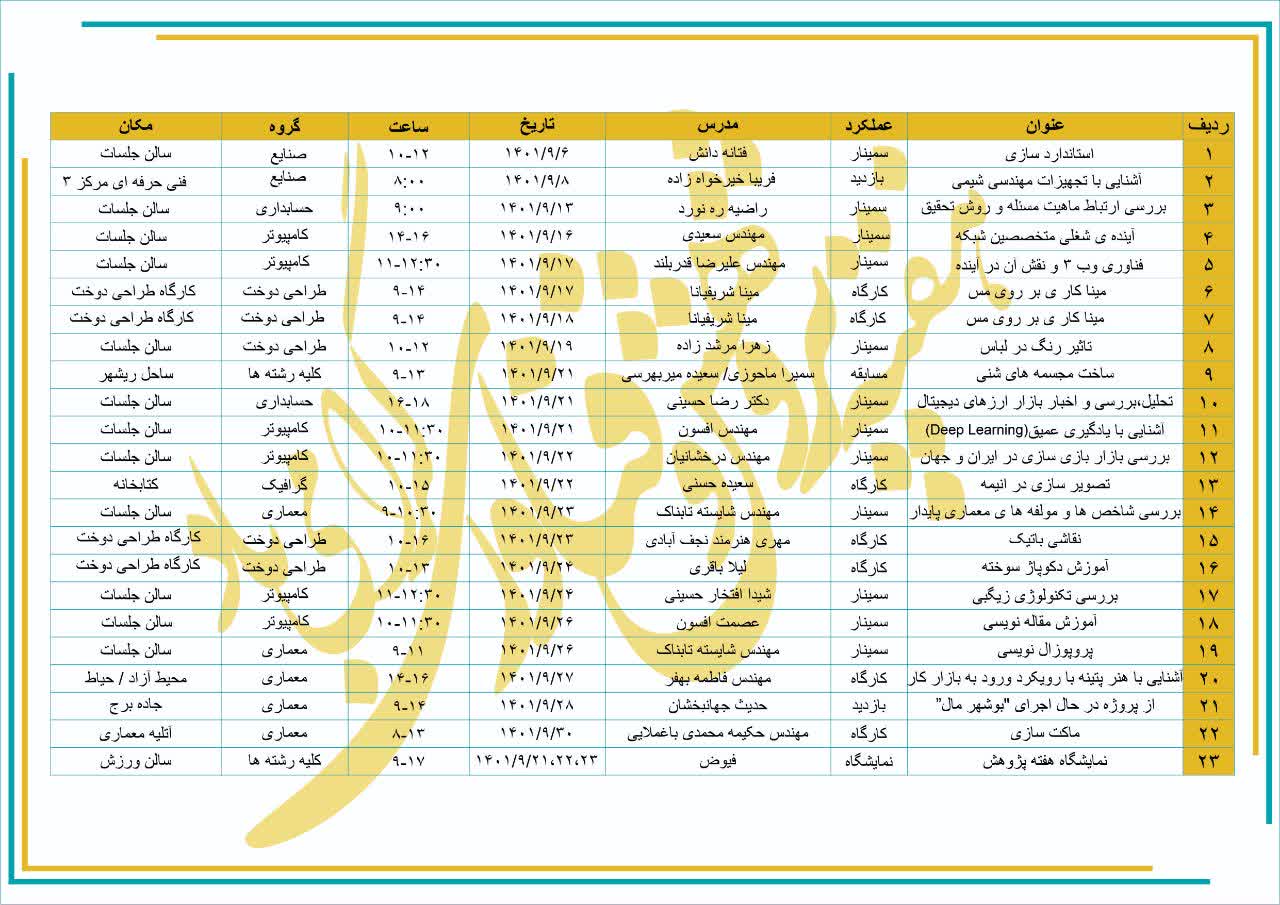 ردیف عنوان عملکرد مدرس تاریخ ساعت گروه مکان
۱ استاندارد سازی سمینار فتانه دانش ۱۴۰۱/۹/۶ ۱۰-۱۲ صنایع سالن جلسات
۲ آشنایی با تجهیزات مهندسی شیمی بازدید فریبا خیرخواه زاده ۱۴۰۱/۹/۸ ۸:۰۰ صنایع فنی حرفه ای مرکز ۳
۳ بررسی ارتباط ماهیت مسئله و روش تحقیق سمینار راضیه ره نورد ۱۴۰۱/۹/۱۳ ۹:۰۰ حسابداری سالن جلسات
۴ آینده ی شغلی متخصصین شبکه سمینار مهندس سعیدی ۱۴۰۱/۹/۱۶ ۱۴-۱۶ کامپیوتر سالن جلسات
۵ فناوری وب ۳ و نقش آن در آینده سمینار مهندس علیرضا قدربلند ۱۴۰۱/۹/۱۷ ۱۱-۱۲:۳۰ کامپیوتر سالن جلسات
۶ مینا کار ی بر روی مس کارگاه مینا شریفیانا ۱۴۰۱/۹/۱۷ ۹-۱۴ طراحی دوخت کارگاه طراحی دوخت
۷ مینا کار ی بر روی مس کارگاه مینا شریفیانا ۱۴۰۱/۹/۱۸ ۹-۱۴ طراحی دوخت کارگاه طراحی دوخت
۸ تاثیر رنگ در لباس سمینار زهرا مرشد زاده ۱۴۰۱/۹/۱۹ ۱۰-۱۲ طراحی دوخت سالن جلسات
۹ ساخت مجسمه های شنی مسابقه سمیرا ماحوزی/ سعیده میربهرسی ۱۴۰۱/۹/۲۱ ۹-۱۳ کلیه رشته ها ساحل ریشهر
۱۰ تحلیل،بررسی و اخبار بازار ارزهای دیجیتال سمینار دکتر رضا حسینی ۱۴۰۱/۹/۲۱ ۱۶-۱۸ حسابداری سالن جلسات
۱۱ آشنایی با یادگیری عمیق(Deep Learning) سمینار مهندس افسون ۱۴۰۱/۹/۲۱ ۱۰-۱۱:۳۰ کامپیوتر سالن جلسات
۱۲ بررسی بازار بازی سازی در ایران و جهان سمینار مهندس درخشانیان ۱۴۰۱/۹/۲۲ ۱۰-۱۱:۳۰ کامپیوتر سالن جلسات
۱۳ تصویر سازی در انیمه کارگاه سعیده حسنی ۱۴۰۱/۹/۲۲ ۱۰-۱۵ گرافیک کتابخانه
۱۴ بررسی شاخص ها و مولفه ها ی معماری پایدار سمینار مهندس شایسته تابناک ۱۴۰۱/۹/۲۳ ۹-۱۰:۳۰ معماری سالن جلسات
۱۵ نقاشی باتیک کارگاه مهری هنرمند نجف آبادی ۱۴۰۱/۹/۲۳ ۱۰-۱۶ طراحی دوخت کارگاه طراحی دوخت
۱۶ آموزش دکوپاژ سوخته کارگاه لیلا باقری ۱۴۰۱/۹/۲۴ ۱۰-۱۳ طراحی دوخت کارگاه طراحی دوخت
۱۷ بررسی تکنولوژی زیگبی سمینار شیدا افتخار حسینی ۱۴۰۱/۹/۲۴ ۱۱-۱۲:۳۰ کامپیوتر سالن جلسات
۱۸ آموزش مقاله نویسی سمینار عصمت افسون ۱۴۰۱/۹/۲۶ ۱۰-۱۱:۳۰ کامپیوتر سالن جلسات
۱۹ پروپوزال نویسی سمینار مهندس شایسته تابناک ۱۴۰۱/۹/۲۶ ۹-۱۱ معماری سالن جلسات
۲۰ آشنایی با هنر پتینه با رویکرد ورود به بازار کار کارگاه مهندس فاطمه بهفر ۱۴۰۱/۹/۲۷ ۱۴-۱۶ معماری محیط آزاد / حیاط
۲۱ از پروژه در حال اجرای "بوشهر مال" بازدید حدیث جهانبخشان ۱۴۰۱/۹/۲۸ ۹-۱۴ معماری جاده برج
۲۲ ماکت سازی کارگاه مهندس حکیمه محمدی باغملایی ۱۴۰۱/۹/۳۰ ۸-۱۳ معماری آتلیه معماری
۲۳ نمایشگاه هفته پژوهش نمایشگاه فیوض ۱۴۰۱/۹/۲۱،۲۲،۲۳ ۹-۱۷ کلیه رشته ها سالن ورزش